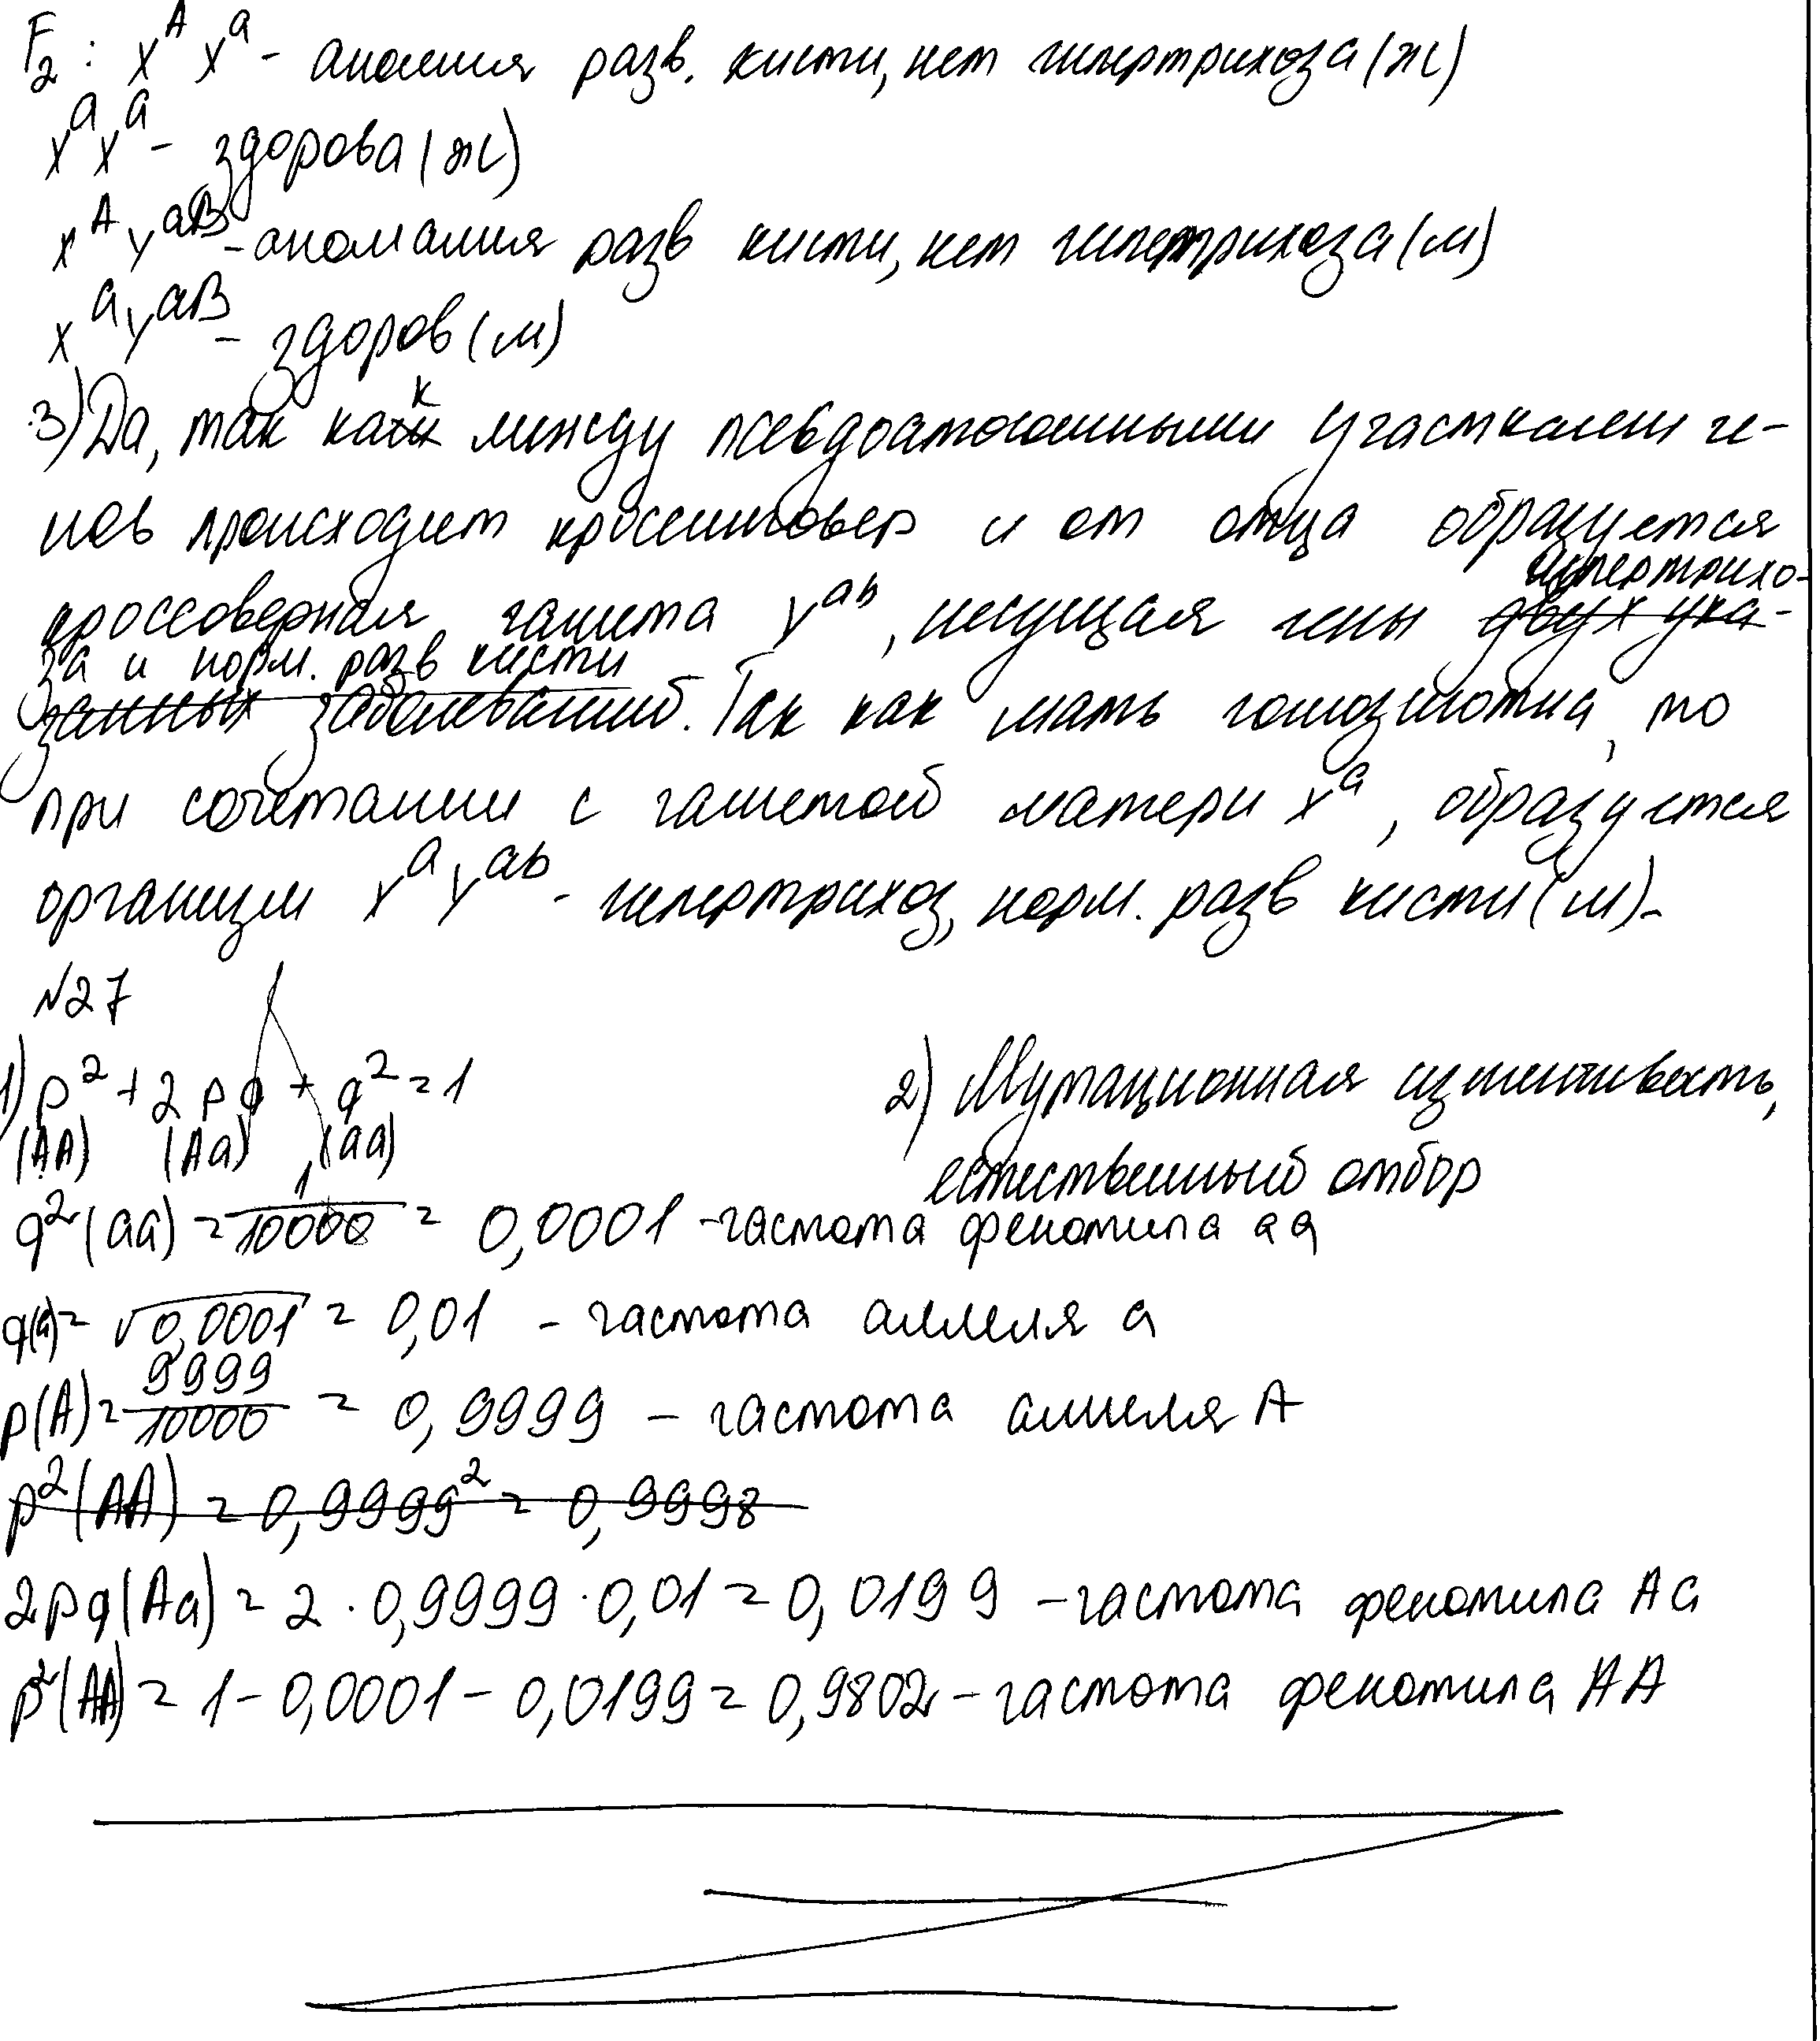 F₂: X^A X^a - аномалия разв. кисти, нет гипертрихоза (ж)
X^a X^a - здорова (ж)
X^A Y^aB - аномалия разв кисти, нет гипертрихоза (м)
X^a Y^aB - здоров (м)
3) Да, так как между псевдоаутосомными участками ге-
нов происходит кроссинговер и от отца образуется
кроссоверная гамета Y^ab, несущая гены гипертрихо-
за и норм. разв кисти. Так как мать гомозиготна, то
при сочетании с гаметой матери X^a, образуется
организм X^a Y^ab - гипертрихоз, норм. разв кисти (м).
№27
1) p² + 2pq + q² = 1
(AA) (Aa) (aa)
2) Мутационная изменчивость,
естественный отбор
q² (aa) = 1/10000 = 0,0001 - частота фенотипа aa
q(a) = √0,0001 = 0,01 - частота аллеля a
p(A) = 9999/10000 = 0,9999 - частота аллеля A
p² (AA) = 0,9999² = 0,9998
2pq (Aa) = 2 · 0,9999 · 0,01 = 0,0199 - частота фенотипа Aa
p² (AA) = 1 - 0,0001 - 0,0199 = 0,9802 - частота фенотипа AA